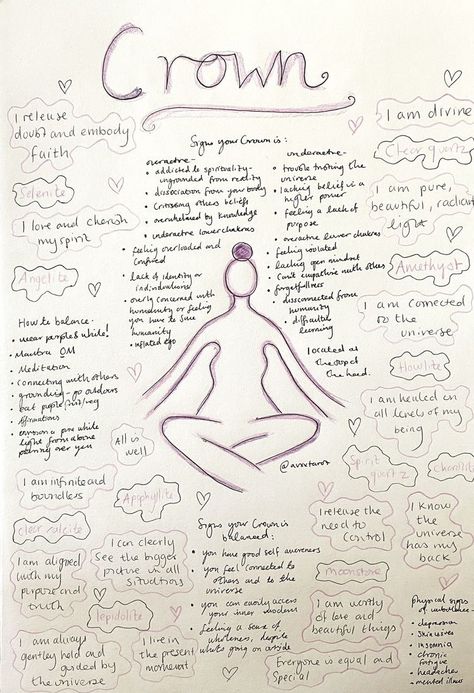 Crown
I release
doubt and embody
faith
Selenite
I love and cherish
my spirit
Angelite
How to balance -
• wear purple & white!
• Mantra OM
• Meditation
• connecting with others
• grounding - go outdoors
• eat purple
• affirmations
• envision a pure white
light from above
pouring over you
Signs your Crown is:
overactive -
• addicted to spirituality -
ungrounded from reality
• dissociation from your body
• Crossing others beliefs
• overwhelmed by knowledge
• underactive lower chakras
• feeling overloaded and
confused
• lack of identity or
individualism
• overly concerned with
humanity or feeling
you have to save
humanity
• inflated ego
underactive -
• trouble trusting the
universe
• lacking belief in a
higher power
• feeling a lack of
purpose
• overactive lower chakras
• feeling isolated
• lacking open mindset
• Can't empathise with others
• forgetfulness
• disconnected from
humanity
• difficulties
learning
Located at
the top of
the head.
I am divine
Clear quartz
I am pure,
beautiful, radiant
light
Amethyst
I am connected
to the
universe
Howlite
I am healed on
all levels of my
being
Spirit
quartz
Charoite
All is
well
@avivtarot
I am infinite and
boundless
Apophyllite
clear calcite
I am aligned
with my
purpose and
truth
I can clearly
See the bigger
picture in all
situations
lepidolite
I am always
gently held and
guided by
the universe
I live in
the present
moment
Signs your Crown is
balanced:
• you have good self awareness
• you feel connected to
others and to the
universe
• you can easily access
your inner wisdom
• feeling a sense of
wholeness, despite
what's going on outside
I release
the need to
control
I know
the
universe
has my
back
Moonstone
I am worthy
of love and
beautiful things
Everyone is equal and
Special
physical signs
of imbalance -
• depression
• Skin issues
• insomnia
• chronic
fatigue
• headaches
• mental illness